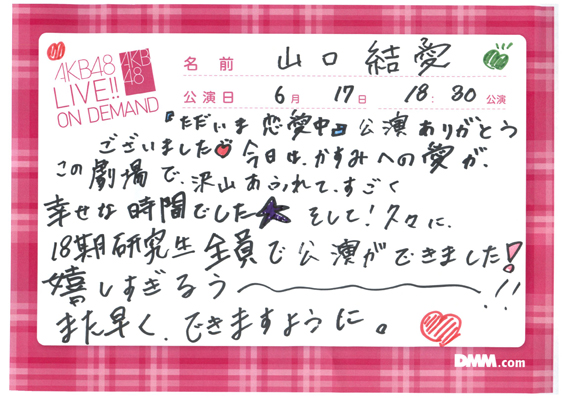 AKB48
LIVE!!
ON DEMAND
AKB
48
名前 山口 結愛
公演日 6月 17日 18:30 公演
『ただいま 恋愛中』公演ありがとう
ございました 今日は、かすみへの愛が、
この劇場で、沢山あふれて、すごく
幸せな時間でした そして！久々に、
18期研究生全員で公演ができました！
嬉しすぎるう〜!!
また早く、できますように。
DMM.com